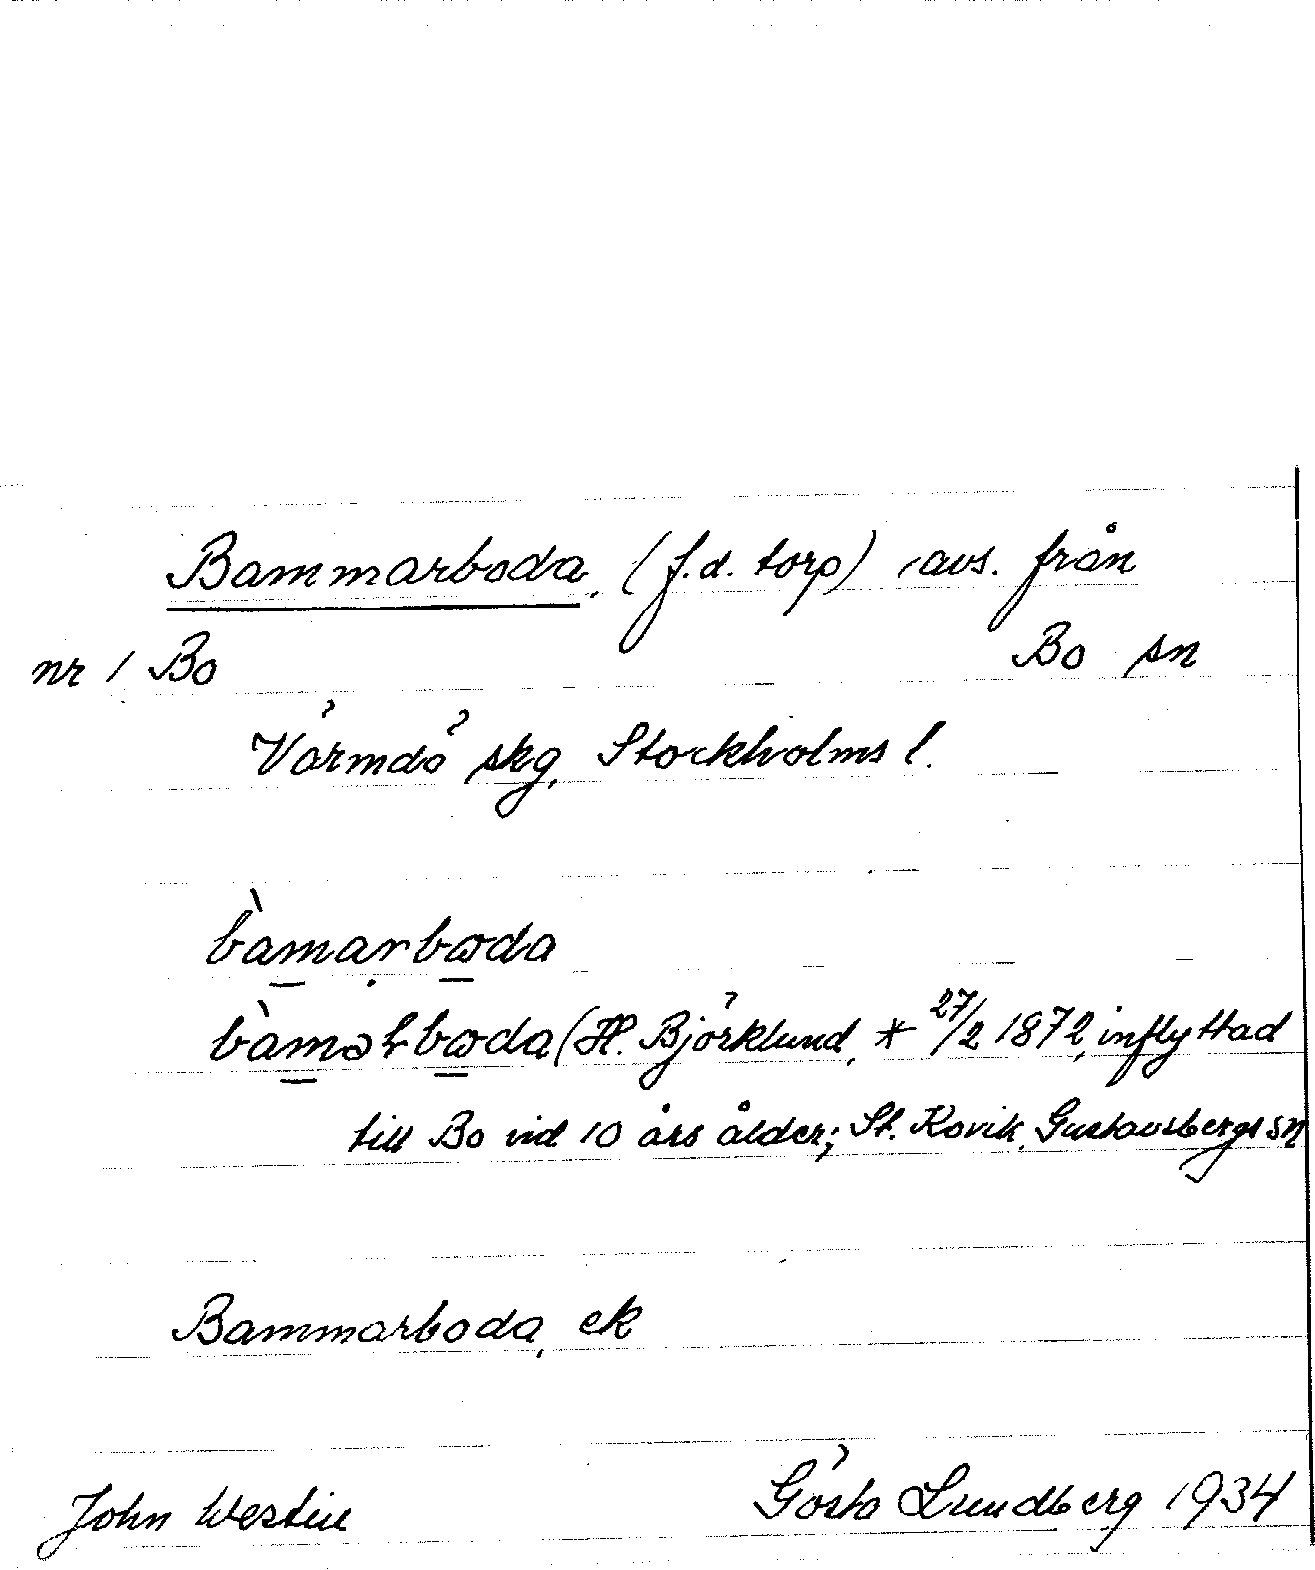 Bammarboda, (f.d. torp) avs. från
nr 1 Bo Bo sn
Värmdö skg, Stockholms l.
bàmarbɷda
bàməɽbɷda (H. Björklund, * 27/2 1872, inflyttad
till Bo vid 10 års ålder; St. Kovik, Gustavsbergs sn
Bammarboda, ek
John Westin Gösta Lundberg 1934